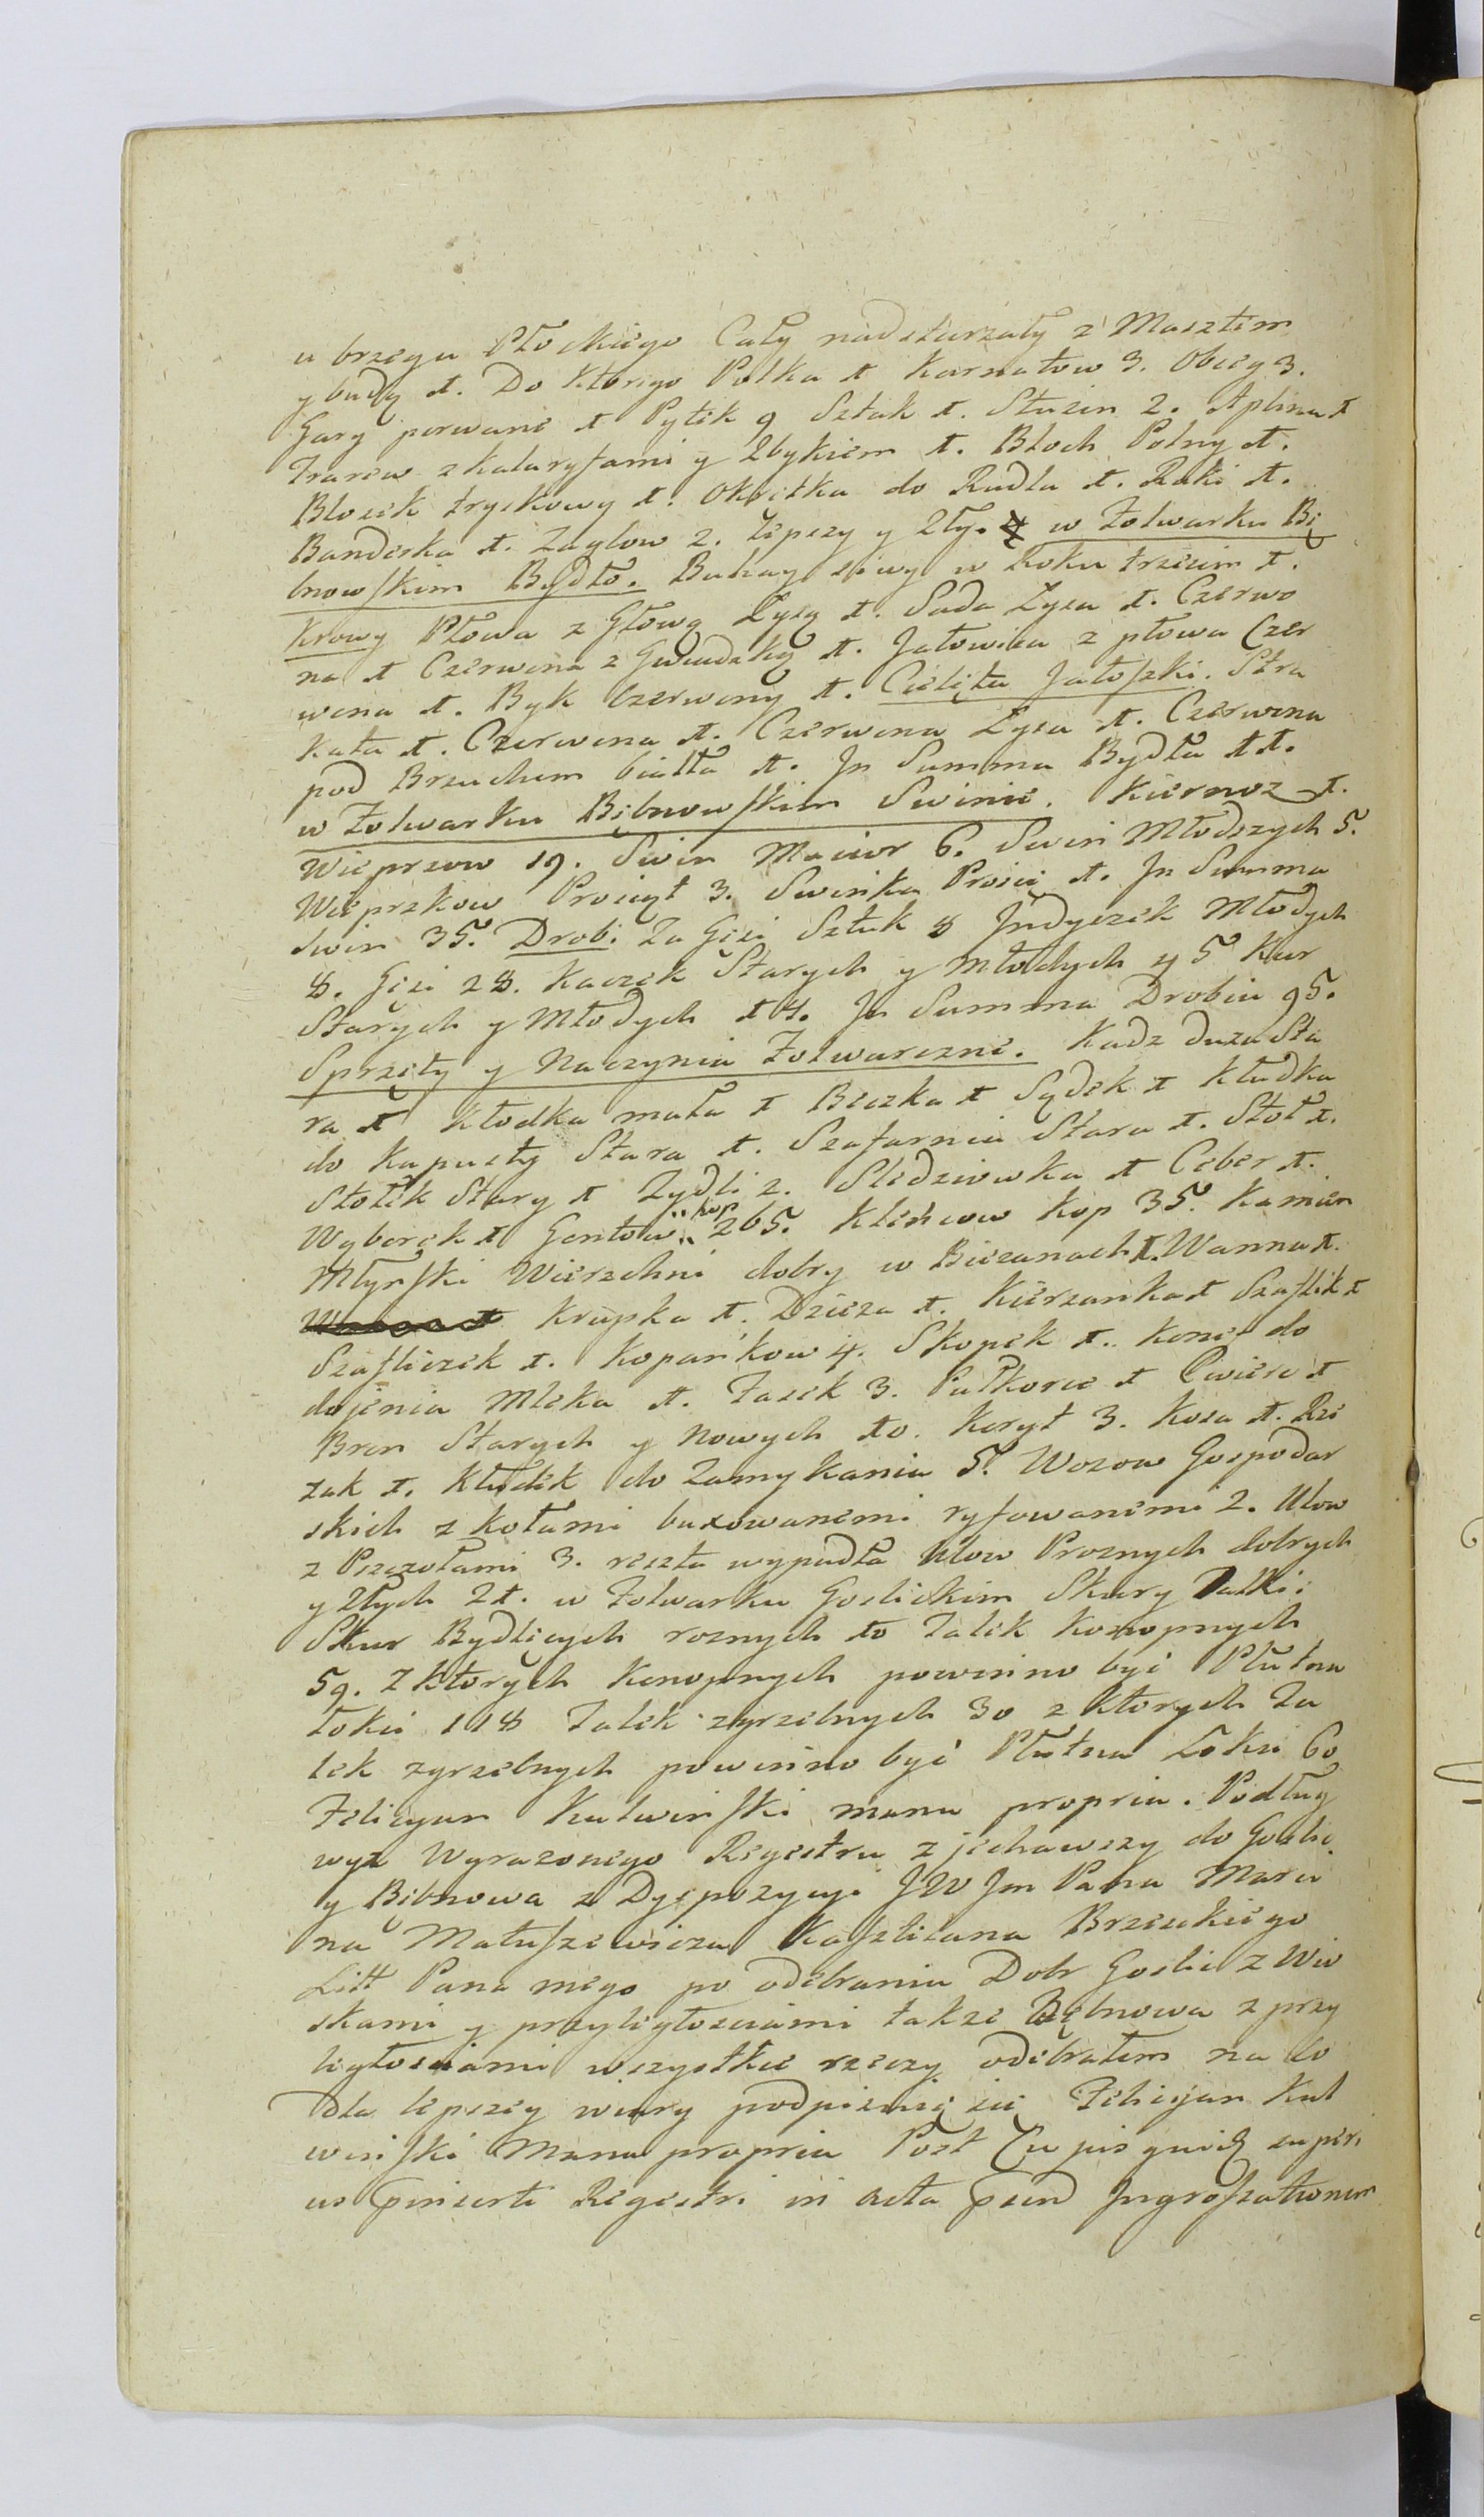 u brzegu Płockiego Cały nadstarzały z Masztem
y budą 1. Do Ktorego Polka 1 Karnatow 3. Obieg 3.
Gary porwane 1 Pytek 9 Sztuk 1. Stuzin 2. Aplina 1
z Kalaryfami y Zbykiem 1. Błoch Polny 1.
Blocek tryckowy 1. Okrętka do Rudla 1. Raki 1.
Banderka 1. Zaglow 2. lepszy y Zły. w Folwarku Bę
bnowſkim Bydło. Buhay siwy w Roku trzecim 1.
Krowy Płowa z Głową Łysą 1. Sada Łysa 1. Czerwo
na 1 Czerwona z Gwiazdką 1. Jałowica z płowa Czer
wona 1. Byk Czerwony 1. Cielęta Jałoſzki. Stra
kata 1. Czerwona 1. Czerwona Łysa 1. Czerwona
pod Brzuchem biała 1. Jn Summa Bydła 11.
w Folwarku Bębnowſkim Swinie. Kiernoz 1.
Wieprzow 19. Swin Macior 6. Swin Młodszych 5.
Wieprzkow Prosiąt 3. Swinka Prosię 1. Jn Summa
Swin 35. Drob. Za Gęsi Sztuk 8 Jndyczek Młodych
8. Gęsi 28. Kaczek Starych y Młodych 45 Kur
Starych y Młodych 14. Jn Summa Drobiu 95.
Sprzęty y Naczynia Folwarczne. Kadz duza Sta
ra 1 Kłodka mała 1 Beczka 1 Sądek 1 Kłudka
do Kapusty Stara 1. Szafarnia Stara 1. Stoł 1.
Stolik Stary 1 Zydli 2. Sledziowka 1 Ceber 1.
Wyborek 1 Gontow kop 265. Klencow Kop 35. Kamien
Młynſki Wierzchni dobry w Biezanach 1. Wanna 1.
Krupka 1. Dzieza 1. Kierzanka 1 Szaflik 1
Szafliczek 1. Kopankow 4. Skopek 1. Konew do
dojenia Mleka 1. Fasek 3. Pułkorce 1 Cwierc 1
Bron Starych y Nowych 10. Koryt 3. Kosa 1. Rze
zak 1. Kłudek do Zamykania 5. Wozow Gospodar
skich z kołami buxowanemi ryfowanemi 2. Ulow
z Pszczołami 3. reszta wypadła Ulow Proznych dobrych
y Złych 21. w Folwarku Goslickim Skury Talki:
Skur Bydlięcych roznych 10 Talek Konopnych
59. Z Ktorych Konopnych powinno być Płutna
Łokci 118 Talek zgrzebnych 30 z Ktorych Ta
lek zgrzebnych powinno być Płutna Łokci 60
Felicyan Kulwinſki manu propria. Podług
wyz Wyrazonego Regestru zjechawszy do Goslic
y Bębnowa z Dyspozycyi JW Jm Pana Marci
na Matuſzewicza Kaſztelana Brzeskiego
Litt Pana mego po odebraniu Dobr Goslic z Wio
skami y przyległosciami takze Bębnowa z przy
ległosciami wszystkie rzeczy odebrałem na co
dla lepszey wiary podpisuię się Felicyan Kul
winſki Manu propria Post Cujus quidem superi
us inserti Regestri in Acta Ingroſsationem